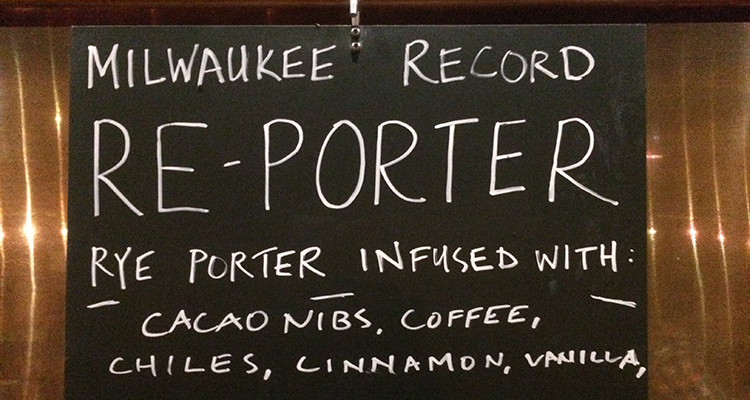 MILWAUKEE RECORD
RE-PORTER
RYE PORTER INFUSED WITH:
CACAO NIBS, COFFEE,
CHILES, CINNAMON, VANILLA,